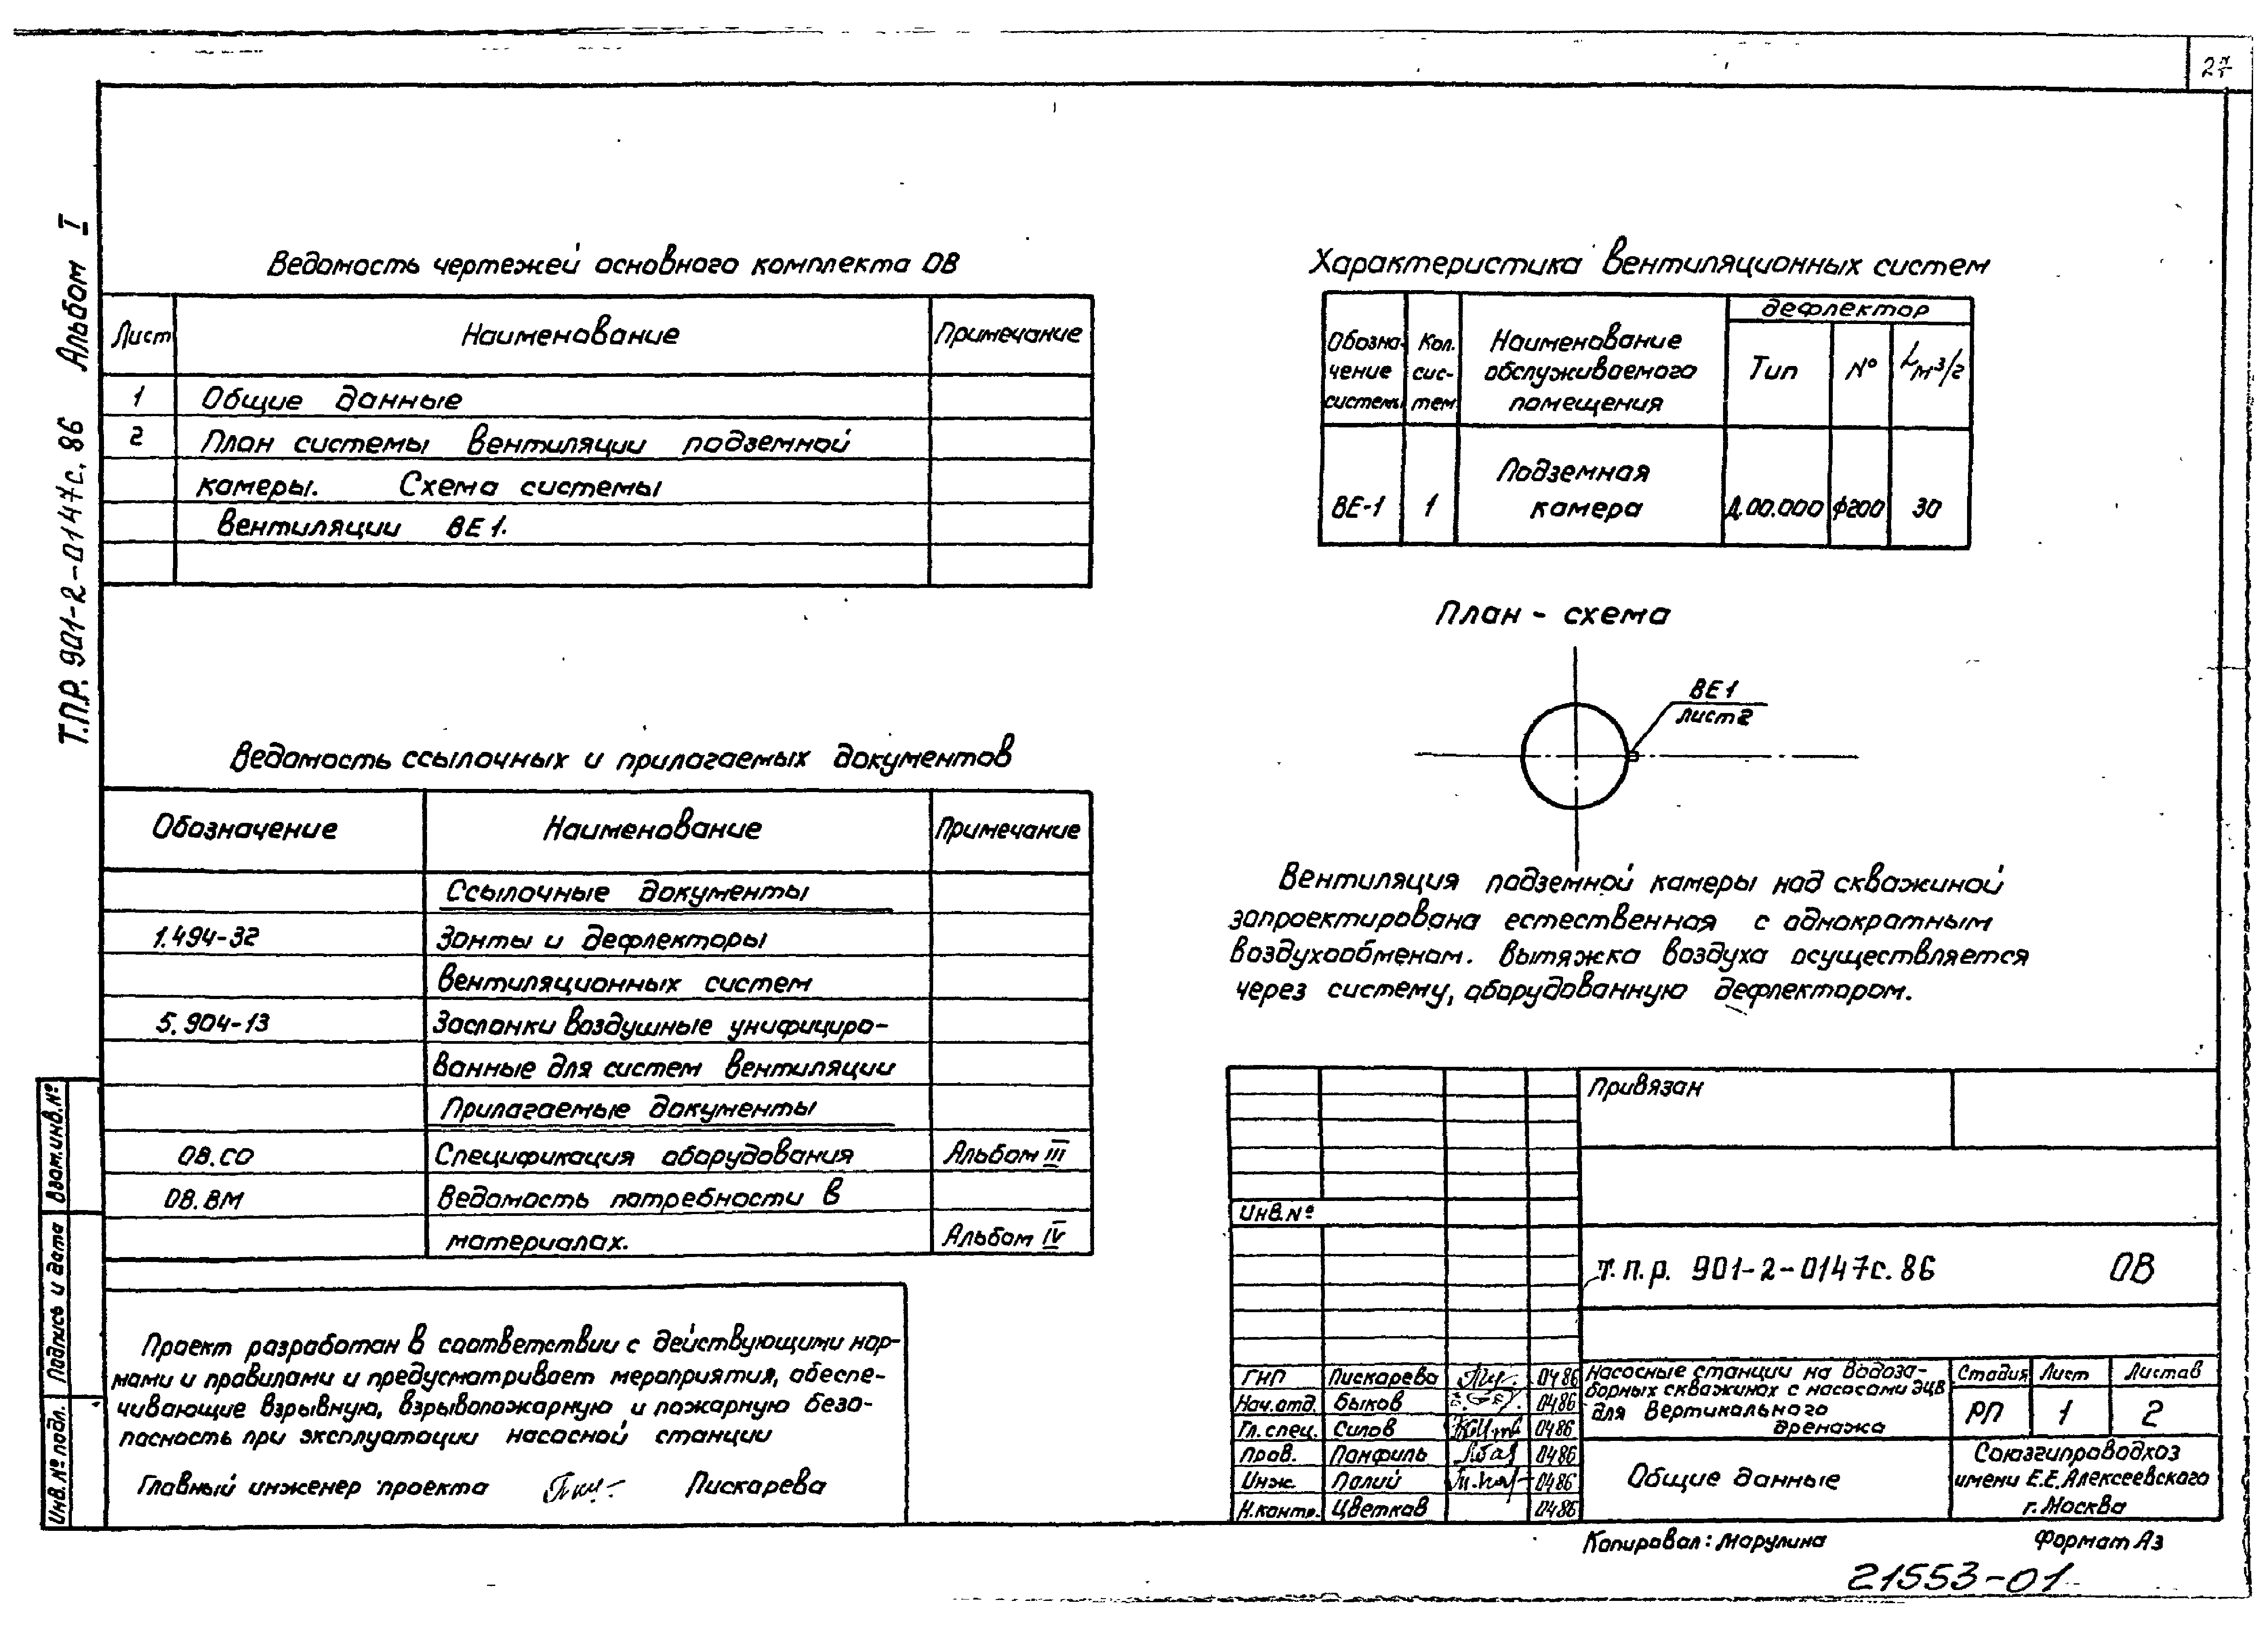 Т.П.Р. 901-2-0147с.86 Альбом I
Ведомость чертежей основного комплекта ОВ
Лист Наименование Примечание
1 Общие данные
2 План системы вентиляции подземной
камеры. Схема системы
вентиляции ВЕ1.
Ведомость ссылочных и прилагаемых документов
Обозначение Наименование Примечание
Ссылочные документы
1.494-32 Зонты и дефлекторы
вентиляционных систем
5.904-13 Заслонки воздушные унифициро-
ванные для систем вентиляции
Прилагаемые документы
ОВ.СО Спецификация оборудования Альбом III
ОВ.ВМ Ведомость потребности в
материалах. Альбом IV
Проект разработан в соответствии с действующими нор-
мами и правилами и предусматривает мероприятия, обеспе-
чивающие взрывную, взрывопожарную и пожарную безо-
пасность при эксплуатации насосной станции
Главный инженер проекта Пискарева
Взам.инв.№
Подпись и дата
Инв.№ подл.
Характеристика вентиляционных систем
Обозна-
чение
системы
Кол.
сис-
тем
Наименование
обслуживаемого
помещения
дефлектор
Тип № L м³/г
ВЕ-1 1 Подземная
камера Д.00.000 ф200 30
План - схема
ВЕ1
лист 2
Вентиляция подземной камеры над скважиной
запроектирована естественная с однократным
воздухообменом. Вытяжка воздуха осуществляется
через систему, оборудованную дефлектором.
Привязан
Инв.№
Т.п.р. 901-2-0147с.86 ОВ
ГИП Пискарева 0486
Нач.отд. Быков 0486
Гл.спец. Силов 0486
Пров. Панфиль 0486
Инж. Палий 0486
Н.контр. Цветков 0486
Насосные станции на водоза-
борных скважинах с насосами ЭЦВ
для вертикального
дренажа
Стадия Лист Листов
РП 1 2
Общие данные
Союзгипроводхоз
имени Е.Е.Алексеевского
г.Москва
Копировал: Марулина Формат А3
21553-01